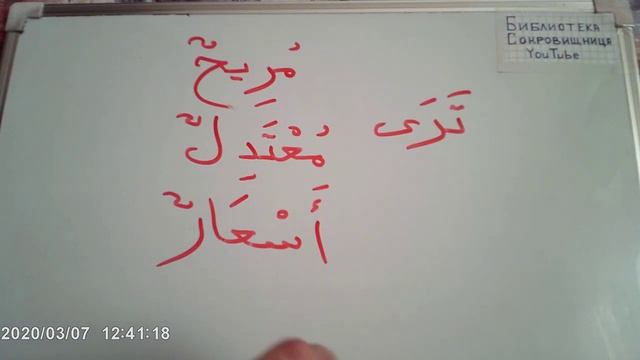 Библиотека
Сокровищница
YouTube
مُرِيحٌ
تَرَى
مُعْتَدِلٌ
أَسْعَارٌ
2020/03/07 12:41:18